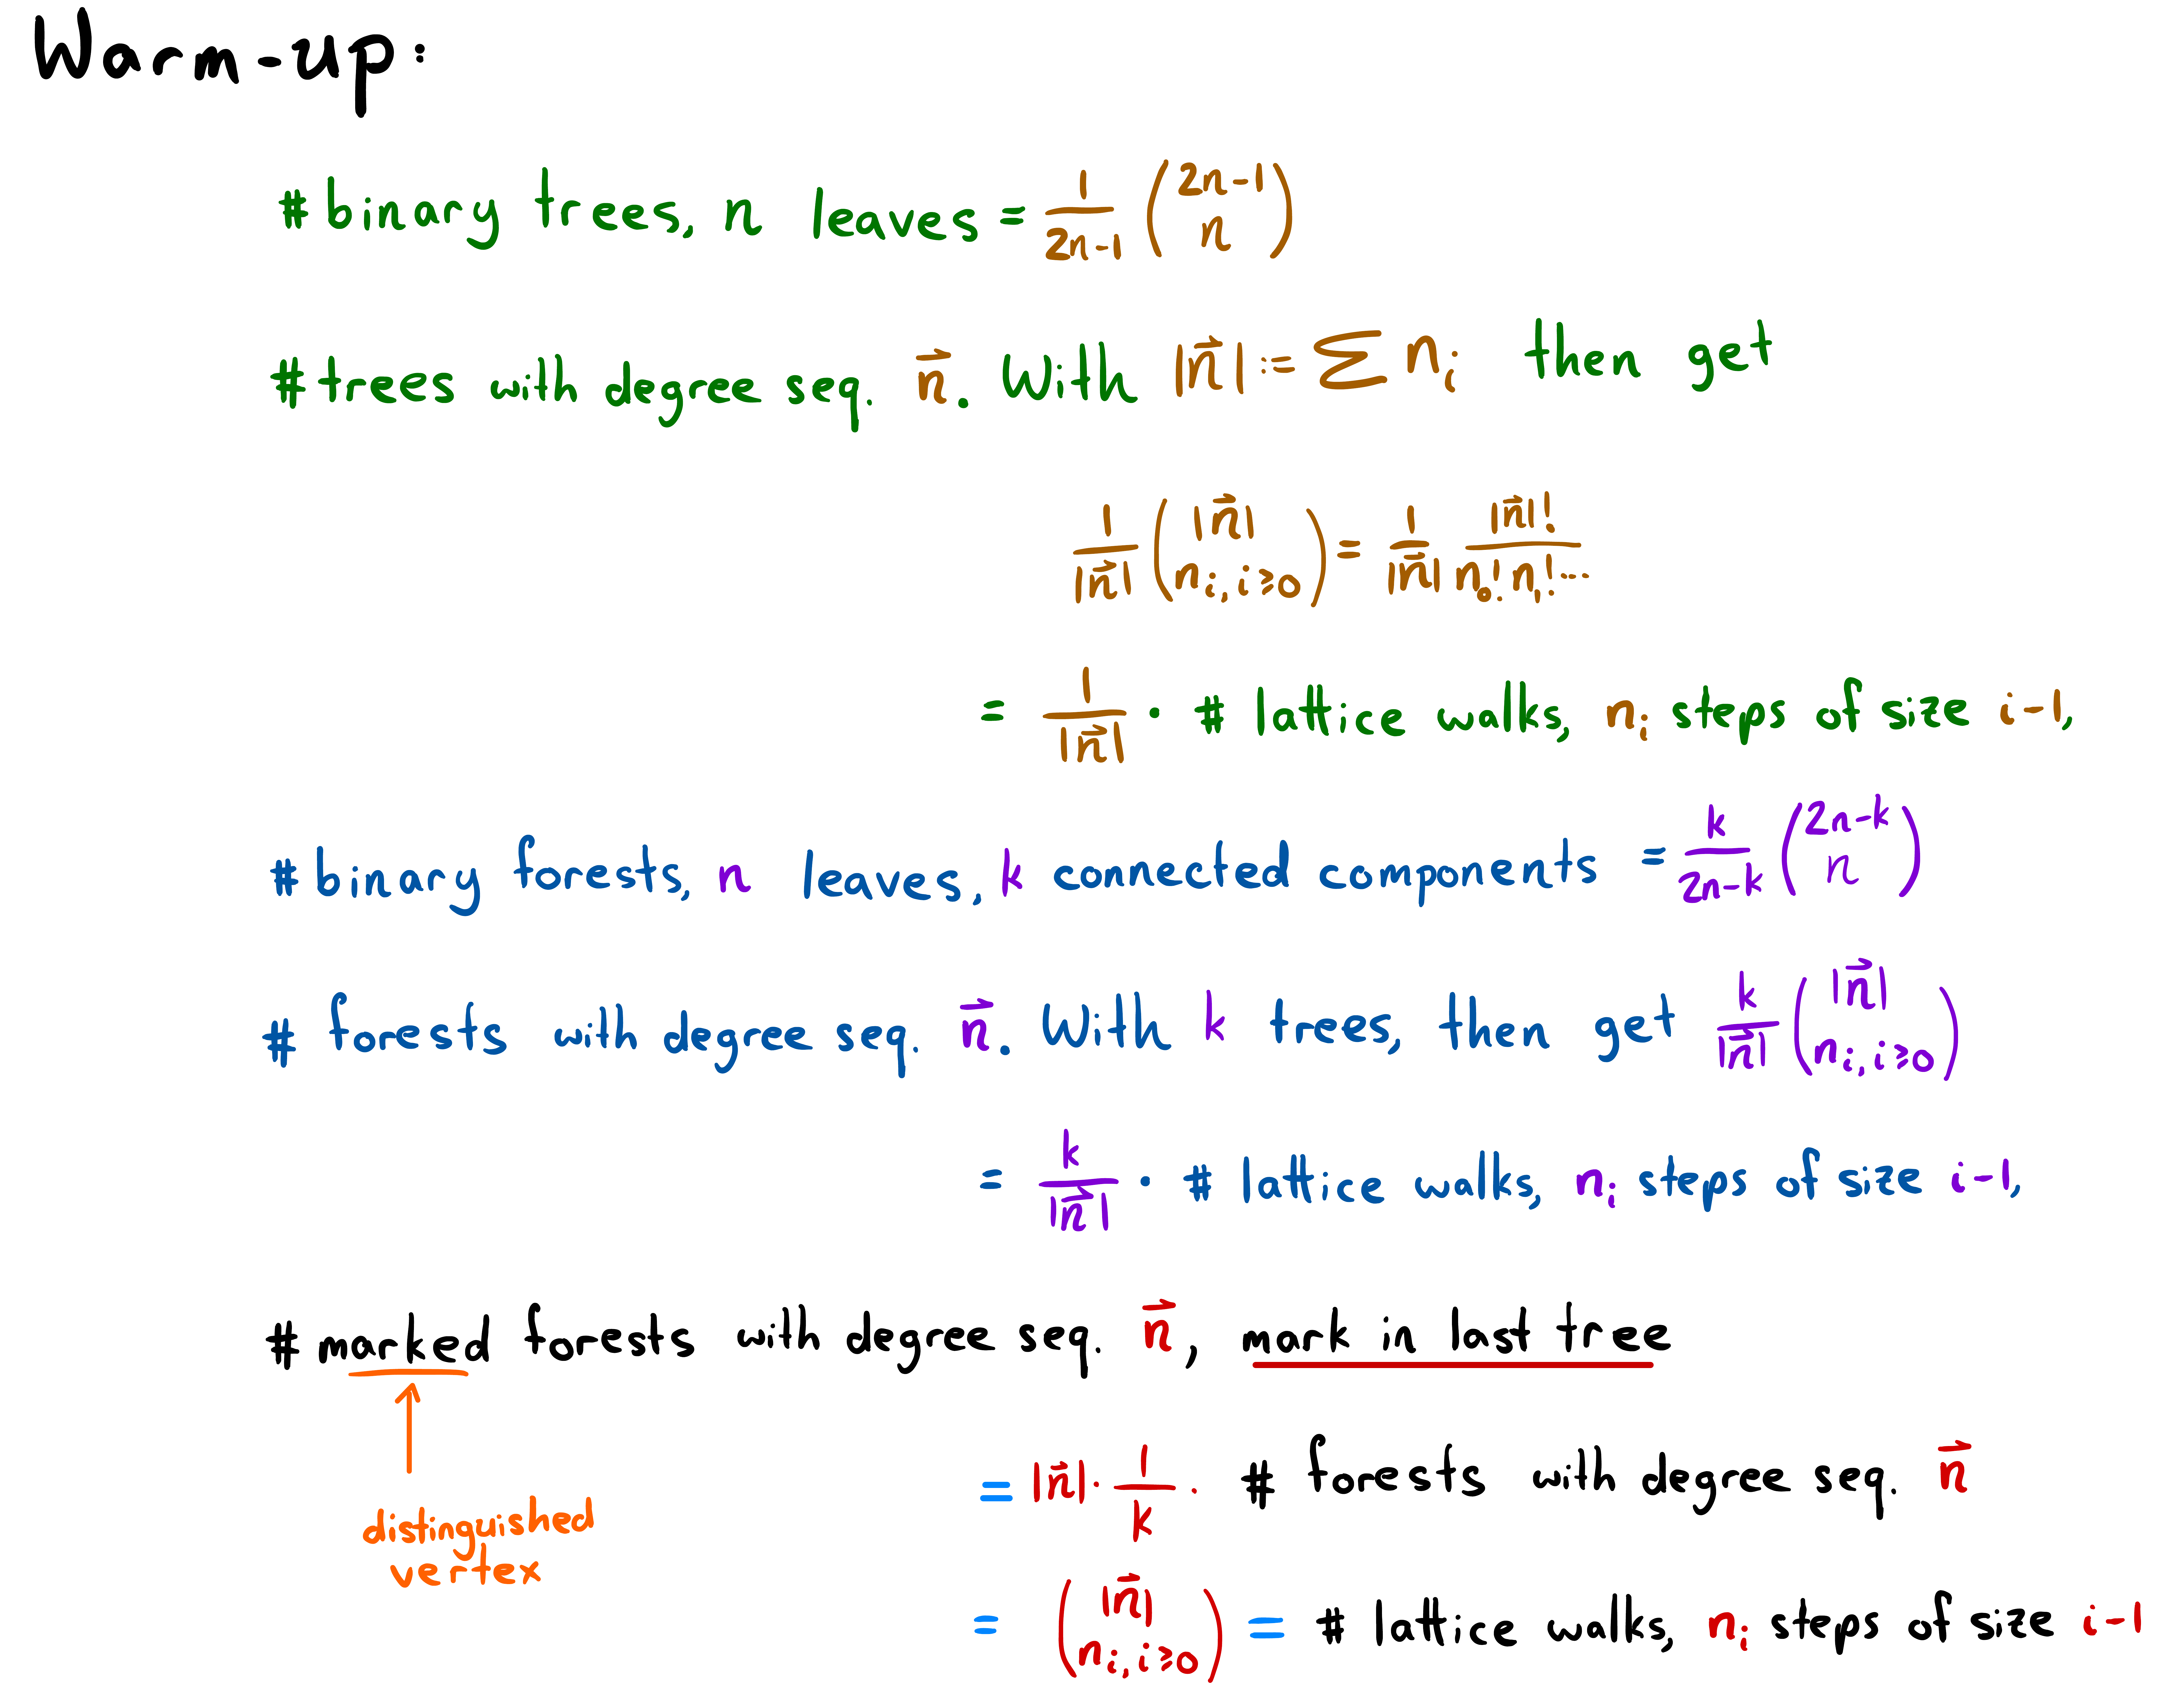 Warm-up:
#binary trees, n leaves = \frac{1}{2n-1} \binom{2n-1}{n}
#trees with degree seq. \vec{n}. With |\vec{n}| := \sum n_i then get
\frac{1}{|\vec{n}|} \binom{|\vec{n}|}{n_i, i≥0} = \frac{1}{|\vec{n}|} \frac{|\vec{n}|!}{n_0! n_1! ...}
= \frac{1}{|\vec{n}|} · # lattice walks, n_i steps of size i-1,
#binary forests, n leaves, k connected components = \frac{k}{2n-k} \binom{2n-k}{n}
# forests with degree seq. \vec{n}. With k trees, then get \frac{k}{|\vec{n}|} \binom{|\vec{n}|}{n_i, i≥0}
= \frac{k}{|\vec{n}|} · # lattice walks, n_i steps of size i-1,
#marked forests with degree seq. \vec{n}, mark in last tree
= |\vec{n}| · \frac{1}{k} · # forests with degree seq. \vec{n}
distinguished
vertex
= \binom{|\vec{n}|}{n_i, i≥0} = # lattice walks, n_i steps of size i-1